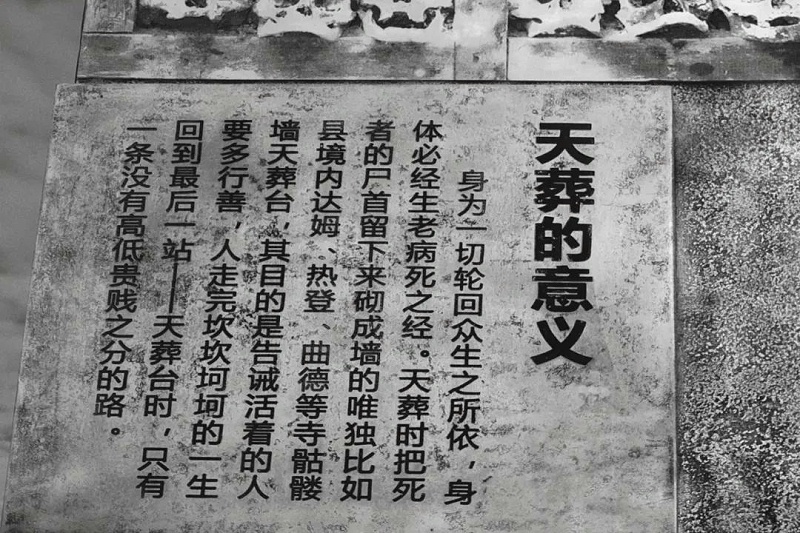 天葬的意义
身为一切轮回众生之所依，身
体必经生老病死之经。天葬时把死
者的尸首留下来砌成墙的唯独比如
县境内达姆、热登、曲德等寺骷髅
墙天葬台，其目的是告诫活着的人
要多行善，人走完坎坎坷坷的一生
回到最后一站——天葬台时，只有
一条没有高低贵贱之分的路。